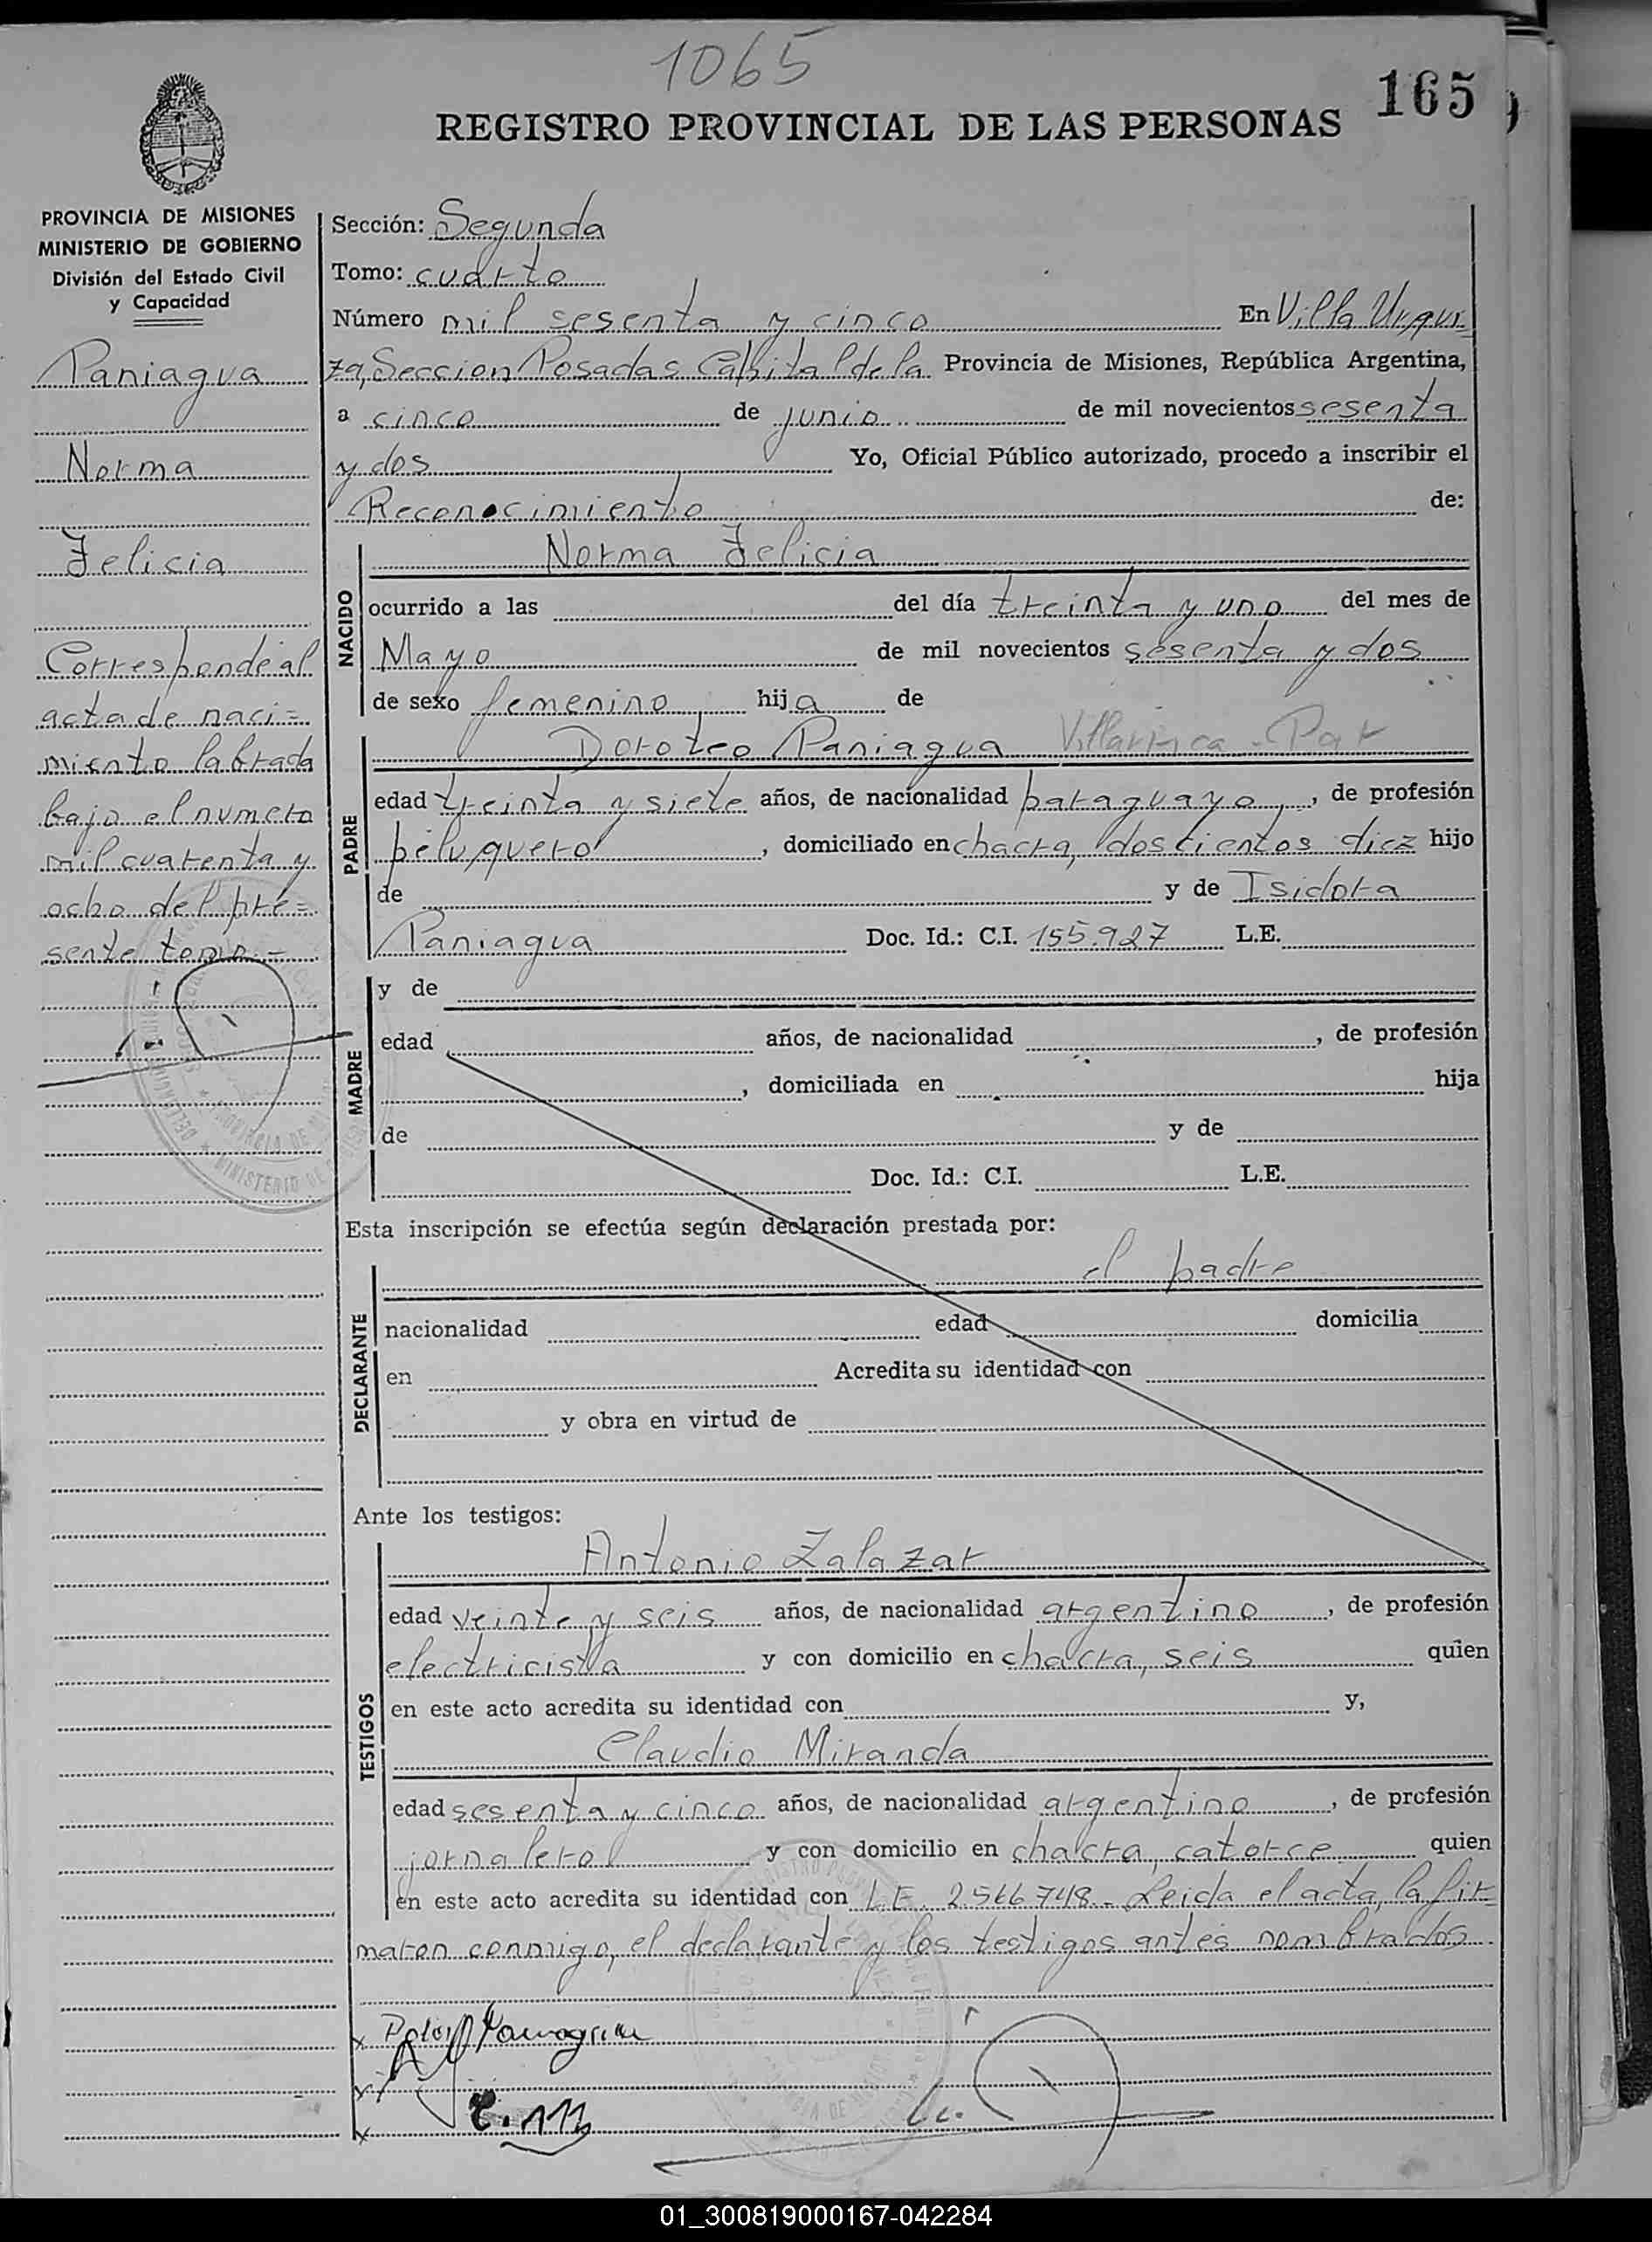 1065
165
REGISTRO PROVINCIAL DE LAS PERSONAS
PROVINCIA DE MISIONES
MINISTERIO DE GOBIERNO
División del Estado Civil
y Capacidad
Paniagua
Norma
Felicia
Corresponde al
acta de naci=
miento labrada
bajo el numero
mil cuarenta y
ocho del pre=
sente tomo=
Sección: Segunda
Tomo: cuarto
Número mil sesenta y cinco En Villa Urqui
za, Seccion Posadas Capital de la Provincia de Misiones, República Argentina,
a cinco de junio de mil novecientos sesenta
y dos Yo, Oficial Público autorizado, procedo a inscribir el
Reconocimiento de:
NACIDO
Norma Felicia
ocurrido a las del día treinta y uno del mes de
Mayo de mil novecientos sesenta y dos
de sexo femenino hija de
PADRE
Doroteo Paniagua Villarrica - Par
edad treinta y siete años, de nacionalidad paraguayo, de profesión
peluquero, domiciliado en chacra, doscientos diez hijo
de y de Isidora
Paniagua Doc. Id.: C.I. 155.927 L.E.
MADRE
y de
edad años, de nacionalidad , de profesión
, domiciliada en hija
de y de
Doc. Id.: C.I. L.E.
Esta inscripción se efectúa según declaración prestada por:
DECLARANTE
el padre
nacionalidad edad domicilia
en Acredita su identidad con
y obra en virtud de
Ante los testigos:
TESTIGOS
Antonio Zalazar
edad veinte y seis años, de nacionalidad argentino, de profesión
electricista y con domicilio en chacra, seis quien
en este acto acredita su identidad con y,
Claudio Miranda
edad sesenta y cinco años, de nacionalidad argentino, de profesión
jornalero y con domicilio en chacra, catorce quien
en este acto acredita su identidad con L.E. 2.566.748.- Leida el acta, la fir
maron conmigo, el declarante y los testigos antes nombrados.
C. M
01_300819000167-042284